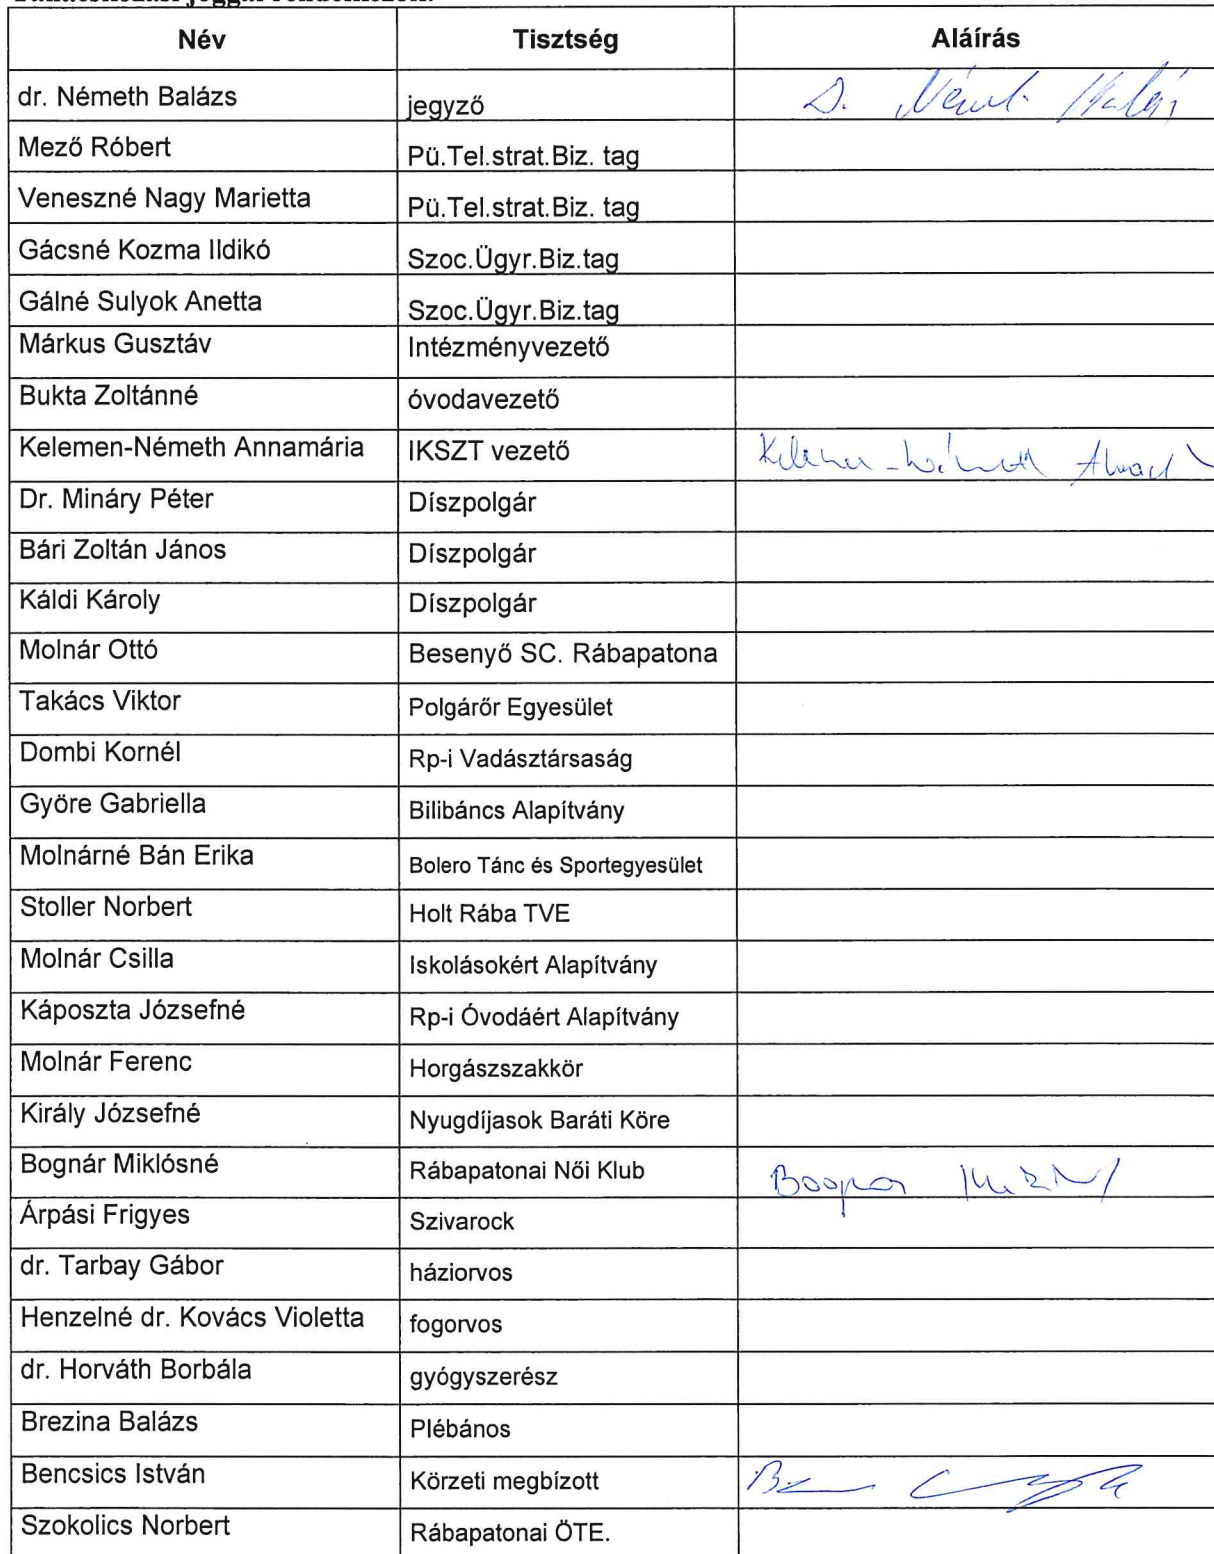 Név Tisztség Aláírás
dr. Németh Balázs jegyző
Mező Róbert Pü.Tel.strat.Biz. tag
Veneszné Nagy Marietta Pü.Tel.strat.Biz. tag
Gácsné Kozma Ildikó Szoc.Ügyr.Biz.tag
Gálné Sulyok Anetta Szoc.Ügyr.Biz.tag
Márkus Gusztáv Intézményvezető
Bukta Zoltánné óvodavezető
Kelemen-Németh Annamária IKSZT vezető
Dr. Mináry Péter Díszpolgár
Bári Zoltán János Díszpolgár
Káldi Károly Díszpolgár
Molnár Ottó Besenyő SC. Rábapatona
Takács Viktor Polgárőr Egyesület
Dombi Kornél Rp-i Vadásztársaság
Györe Gabriella Bilibáncs Alapítvány
Molnárné Bán Erika Bolero Tánc és Sportegyesület
Stoller Norbert Holt Rába TVE
Molnár Csilla Iskolásokért Alapítvány
Káposzta Józsefné Rp-i Óvodáért Alapítvány
Molnár Ferenc Horgászszakkör
Király Józsefné Nyugdíjasok Baráti Köre
Bognár Miklósné Rábapatonai Női Klub
Árpási Frigyes Szivarock
dr. Tarbay Gábor háziorvos
Henzelné dr. Kovács Violetta fogorvos
dr. Horváth Borbála gyógyszerész
Brezina Balázs Plébános
Bencsics István Körzeti megbízott
Szokolics Norbert Rábapatonai ÖTE.